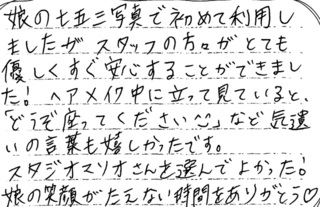 娘の七五三写真で初めて利用し
ましたが スタッフの方々がとても
優しくすぐ安心することができまし
た! ヘアメイク中に立って見ていると、
「どうぞ座ってください^^」など気遣
いの言葉も嬉しかったです。
スタジオマリオさんを選んでよかった!
娘の笑顔がたえない時間をありがとう♡